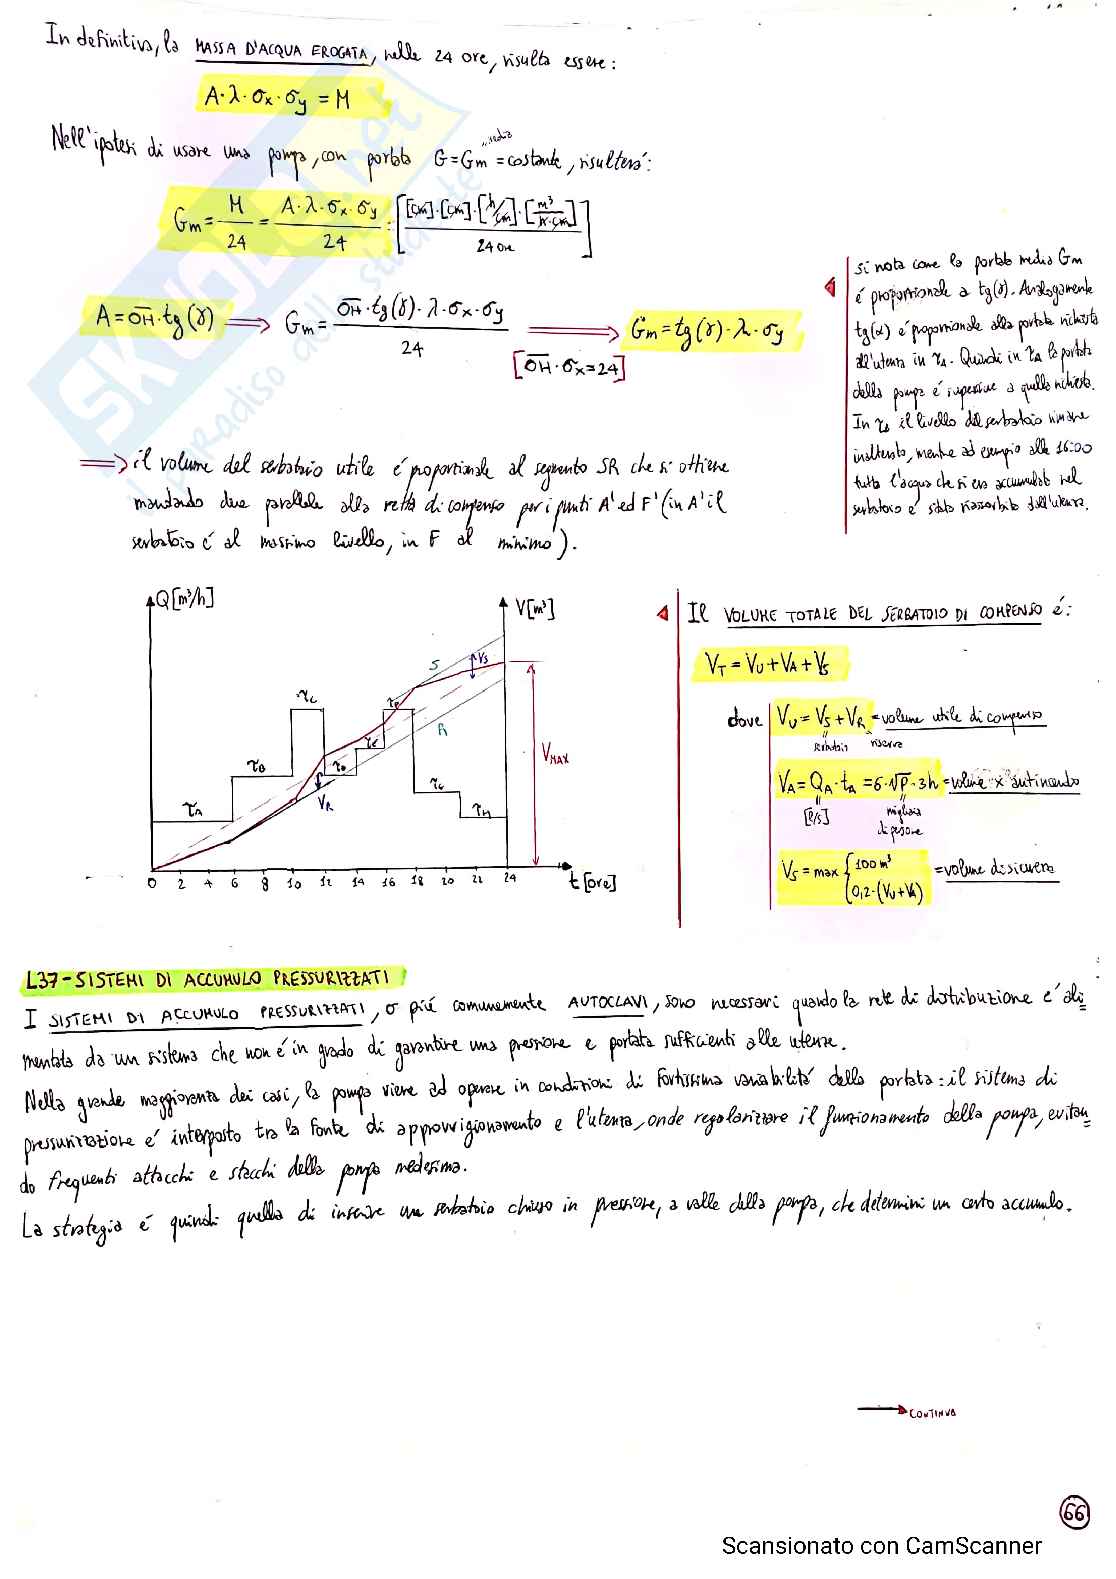 In definitiva, la MASSA D'ACQUA EROGATA, nelle 24 ore, risulta essere:
A·λ·σx·σy = M
Nell'ipotesi di usare una pompa, con portata G=Gm=costante, risulterá:
media
Gm = M/24 = A·λ·σx·σy/24 = [[cm]·[cm]·[h/cm]·[m³/h·cm]]/24 ore
A = OH·tg(γ) ⟹ Gm = OH·tg(γ)·λ·σx·σy/24 ⟹ Gm = tg(γ)·λ·σy
[OH·σx=24]
si nota come la portata media Gm
é proporzionale a tg(γ). Analogamente
tg(α) é proporzionale alla portata richiesta
all'utenza in τA. Quindi in τA la portata
della pompa é superiore a quella richiesta.
In τB il livello del serbatoio rimane
inalterato, mentre ad esempio alle 16:00
tutta l'acqua che si era accumulata nel
serbatoio é stata riassorbita dall'utenza.
⟹ il volume del serbatoio utile é proporzionale al segmento SR che si ottiene
mandando due parallele alla retta di compenso per i punti A' ed F' (in A' il
serbatoio é al massimo livello, in F al minimo).
Q[m³/h]
V[m³]
S
VS
τC
τF
R
τE
τB
τD
VMAX
τA
VR
τG
τH
0 2 4 6 8 10 12 14 16 18 20 22 24 t[ore]
Il VOLUME TOTALE DEL SERBATOIO DI COMPENSO é:
VT = VU + VA + VS
dove VU = VS + VR = volume utile di compenso
serbatoio riserva
VA = QA·tA = 6·√P·3h = volume x antincendio
[l/s] migliaia
di persone
VS = max {100 m³
0,2·(VU+VA) = volume di sicurezza
L37-SISTEMI DI ACCUMULO PRESSURIZZATI
I SISTEMI DI ACCUMULO PRESSURIZZATI, o piú comunemente AUTOCLAVI, sono necessari quando la rete di distribuzione é ali=
mentata da un sistema che non é in grado di garantire una pressione e portata sufficienti alle utenze.
Nella grande maggioranza dei casi, la pompa viene ad operare in condizioni di fortissima variabilitá della portata: il sistema di
pressurizzazione é interposto tra la fonte di approvvigionamento e l'utenza, onde regolarizzare il funzionamento della pompa, evitan=
do frequenti attacchi e stacchi della pompa medesima.
La strategia é quindi quella di inserire un serbatoio chiuso in pressione, a valle della pompa, che determini un certo accumulo.
CONTINUA
66
Scansionato con CamScanner
SKUOLA.net
il paradiso dello studente